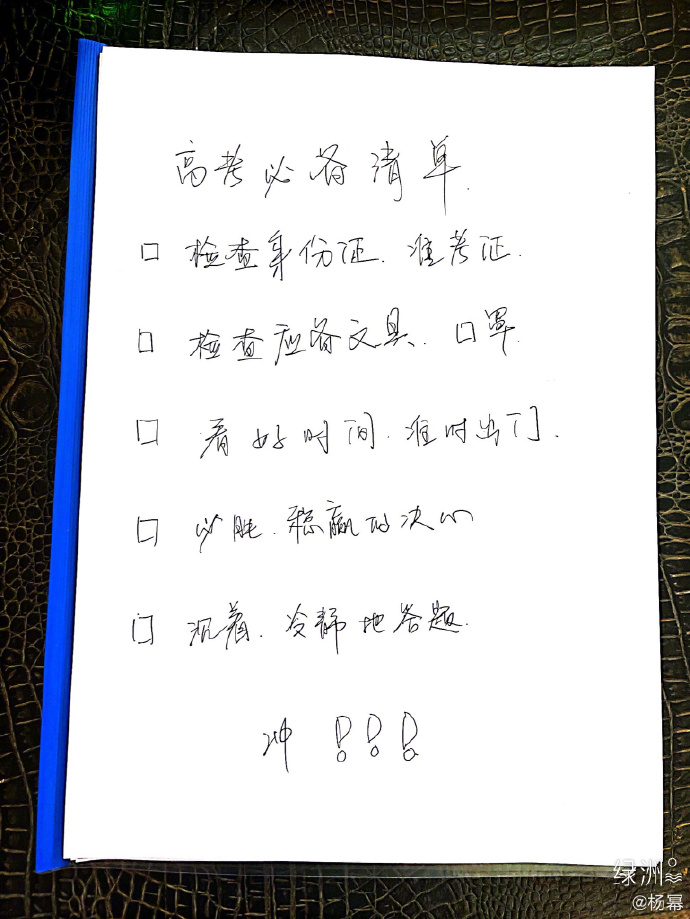 高考必备清单.
□ 检查身份证、准考证.
□ 检查应备文具、口罩.
□ 看好时间、准时出门.
□ 必胜、稳赢的决心
□ 沉着、冷静地答题.
冲!!!
绿洲
@杨幂